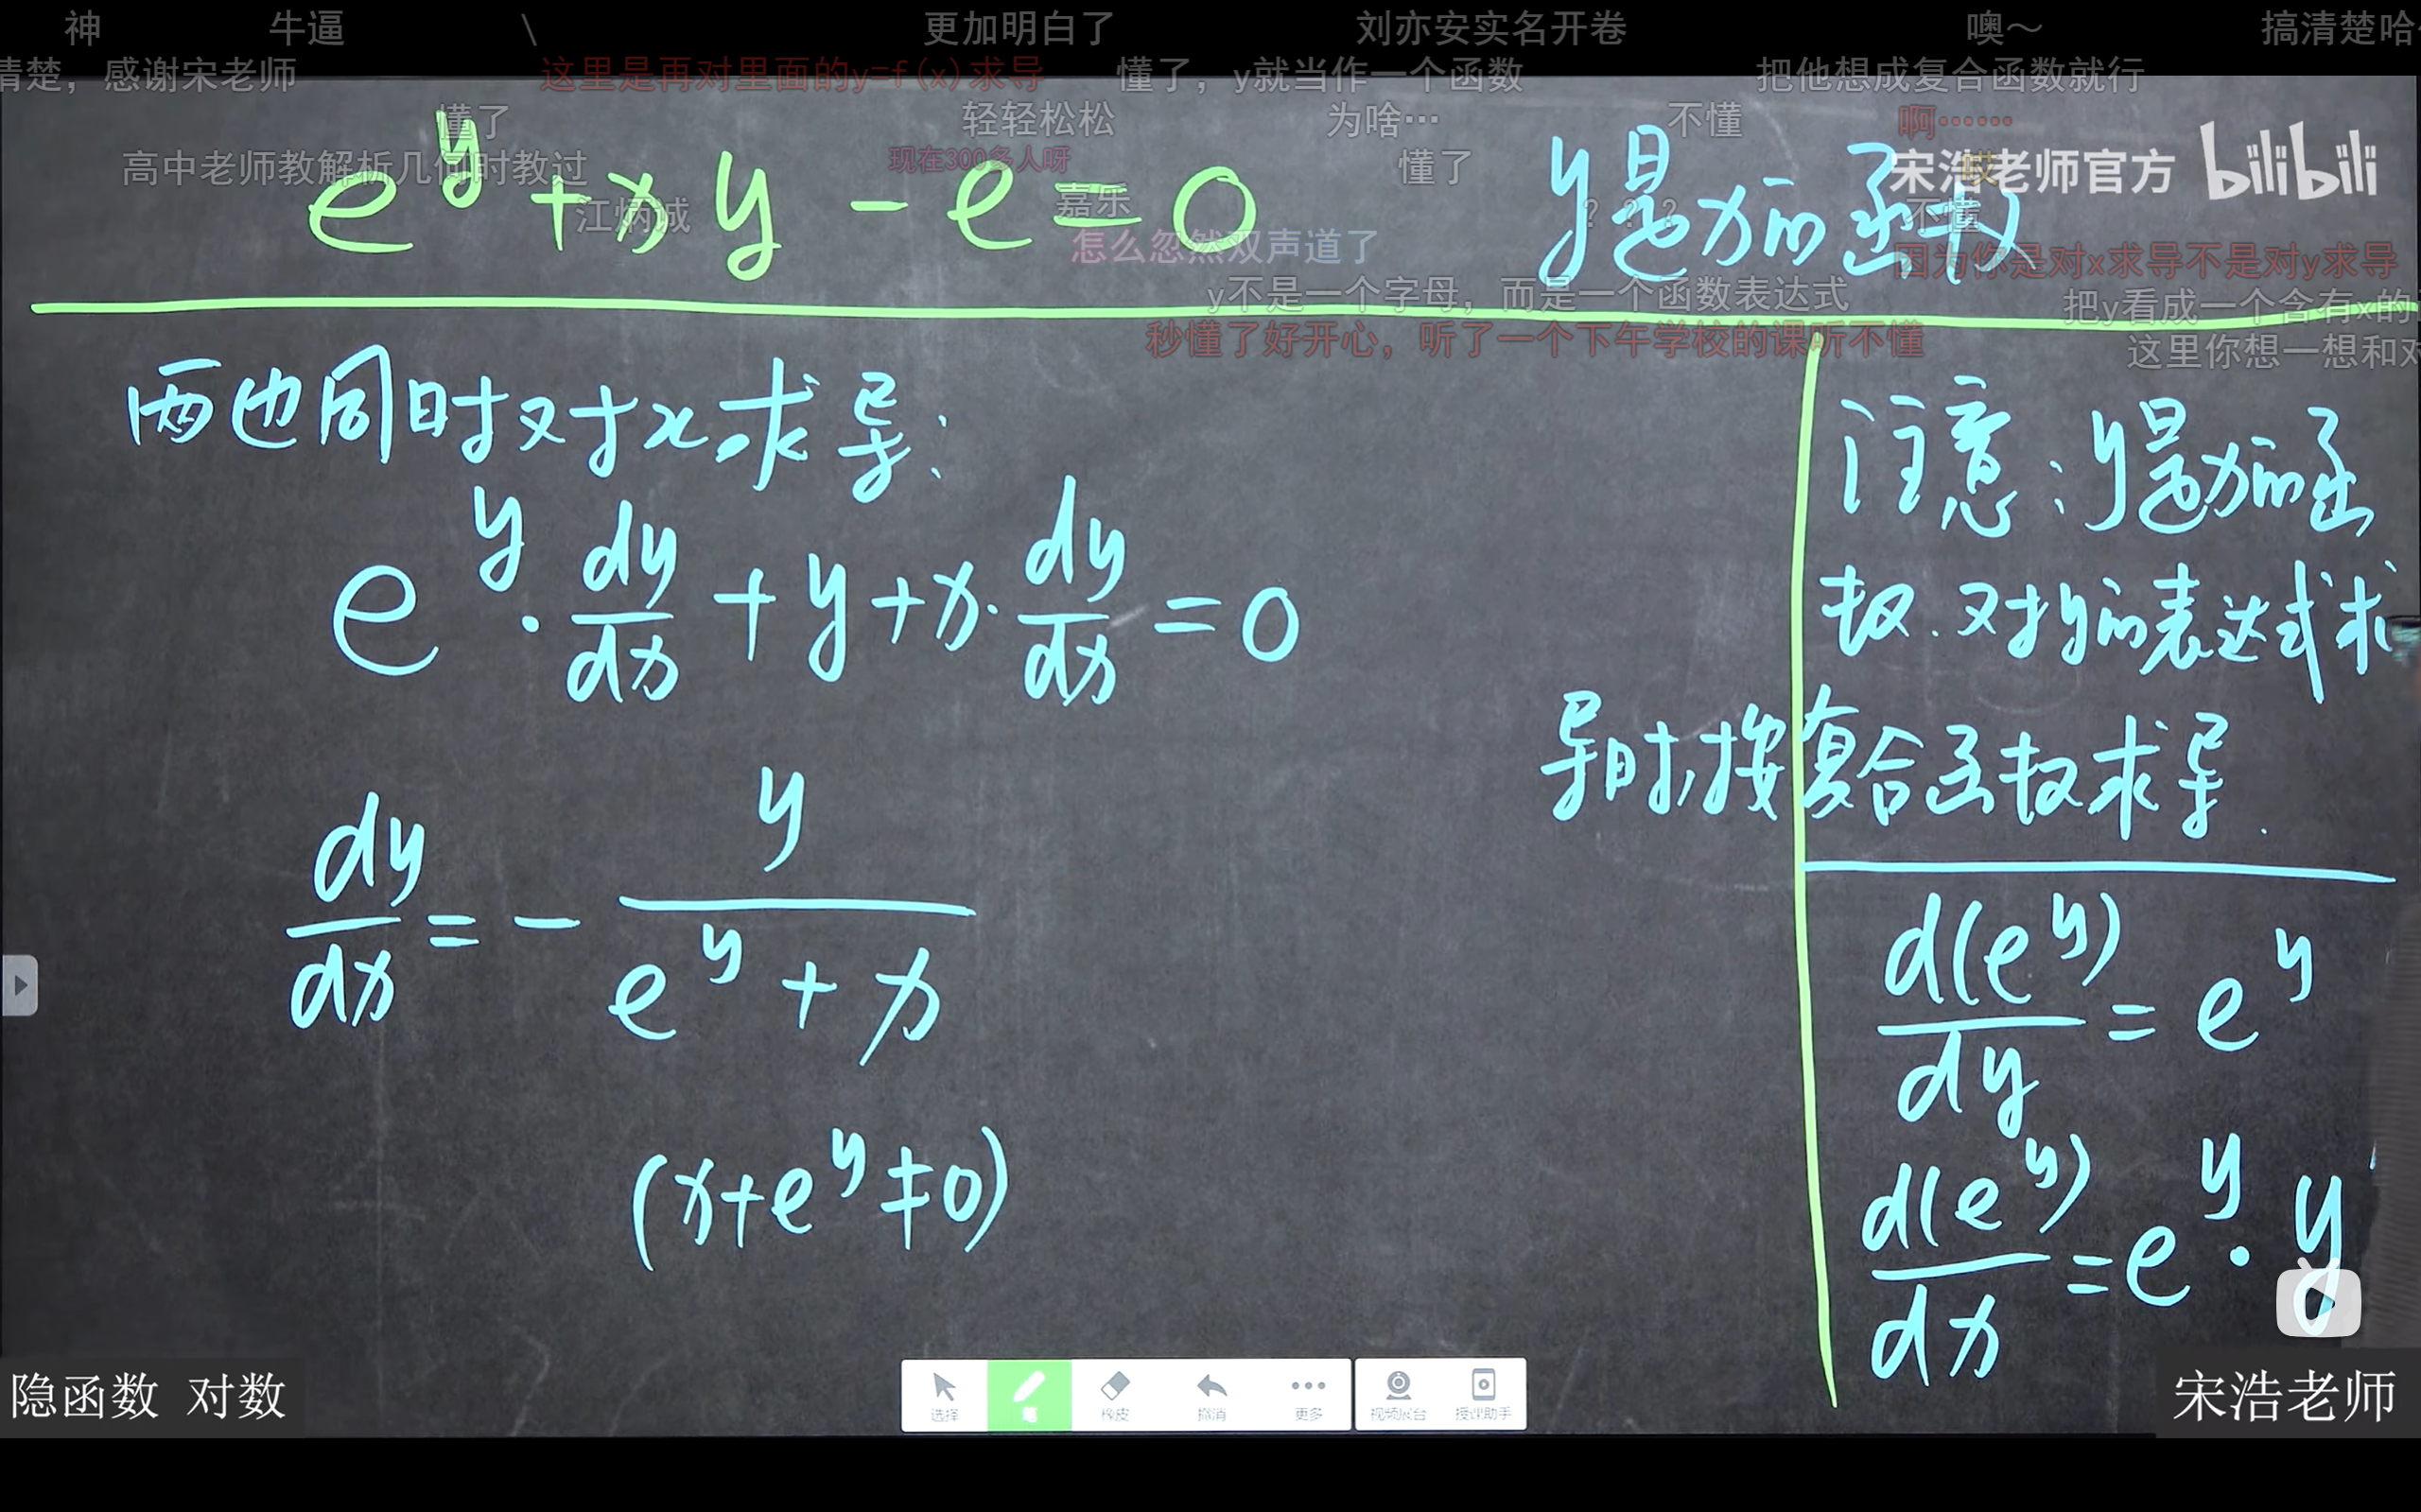 神 牛逼 \ 更加明白了 刘亦安实名开卷 噢～ 搞清楚哈
清楚，感谢宋老师 这里是再对里面的y=f(x)求导 懂了，y就当作一个函数 把他想成复合函数就行
懂了 轻轻松松 为啥… 不懂 啊……
高中老师教解析几何时教过 现在300多人呀 懂了 哎
宋浩老师官方 bilibili
江炳诚 嘉乐 ？？？ 不懂
怎么忽然双声道了 因为你是对x求导不是对y求导
y不是一个字母，而是一个函数表达式 把y看成一个含有x的
秒懂了好开心，听了一个下午学校的课听不懂 这里你想一想和对
e^y + xy - e = 0 y是x的函数
两边同时对x求导:
e^y · dy/dx + y + x · dy/dx = 0
dy/dx = - y/(e^y + x)
(x+e^y≠0)
注意:y是x的函
数.对y的表达式求
导时,按复合函数求导.
d(e^y)/dy = e^y
d(e^y)/dx = e^y · y'
选择 笔 橡皮 撤消 更多 视频展台 授课助手
隐函数 对数
宋浩老师